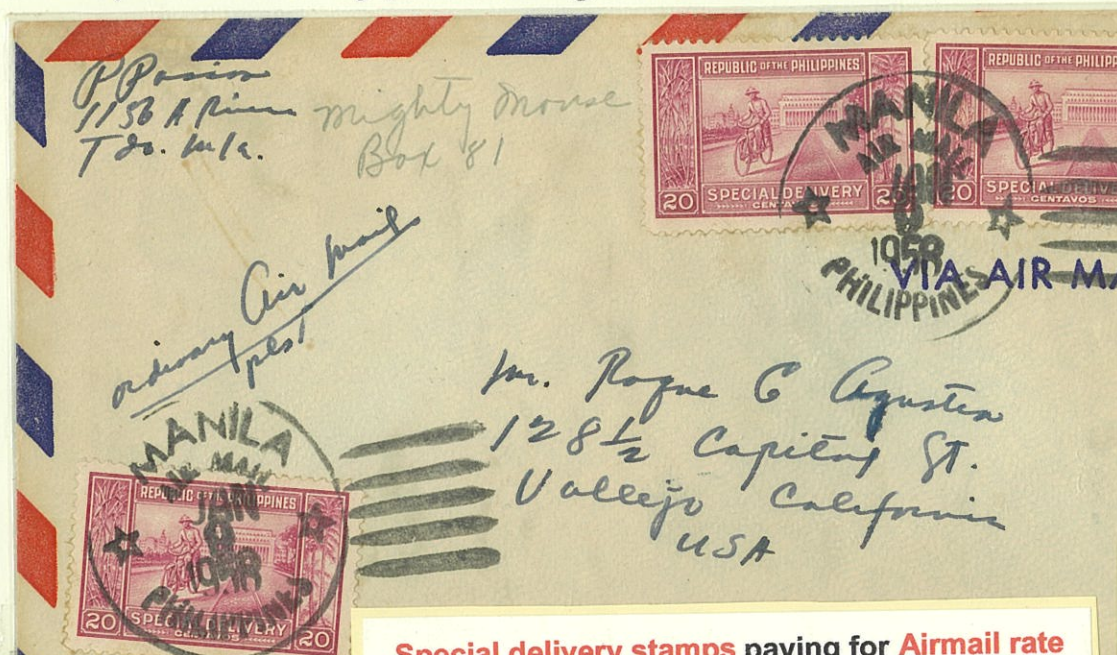 P Pasion
1156 A Rivera
Tdo. Mla.
Mighty Mouse
Box 81
REPUBLIC OF THE PHILIPPINES
20 SPECIAL DELIVERY 20
CENTAVOS
REPUBLIC OF THE PHILIPP
20 SPECIAL DELIVERY
CENTAVOS
MANILA
AIR MAIL
JAN
9
1958
PHILIPPINES
VIA AIR MA
ordinary Air mail
pls!
Mr. Roque C Agustin
128 1/2 Capitol St.
Vallejo California
USA
MANILA
AIR MAIL
JAN
9
1958
PHILIPPINES
REPUBLIC OF THE PHILIPPINES
20 SPECIAL DELIVERY 20
CENTAVOS
Special delivery stamps paying for Airmail rate